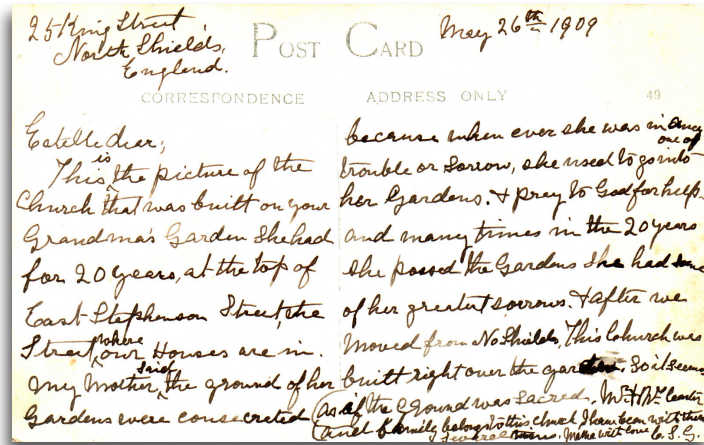 25 King Street,
North Shields,
England.
May 26th 1909
POST CARD
CORRESPONDENCE
ADDRESS ONLY
49
Estelle dear,
This is the picture of the
Church that was built on your
Grandma's Garden She had
for 20 years, at the top of
East Stephenson Street, the
Street where our Houses are in.
My Mother said, the ground of her
Gardens were consecrated
because when ever she was in any
one of
trouble or sorrow, she used to go into
her Gardens. & pray to God for help-
and many times in the 20 years
she possed the Gardens She had some
of her greatest sorrows. & after we
moved from No Shields, This Church was
built right over the garden. So it seems
as if the Ground was sacred. Mr & Mrs
and family belongs to this church I have been with them
several times. Mama with love C. S. G.